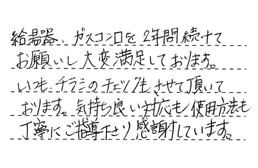 給湯器、ガスコンロを2年間続けて
お願いし大変満足しております。
いつも チラシのチェック生させて頂いて
おります。気持ち良い対応も使用方法も
丁寧にご指導下さり感謝しています。